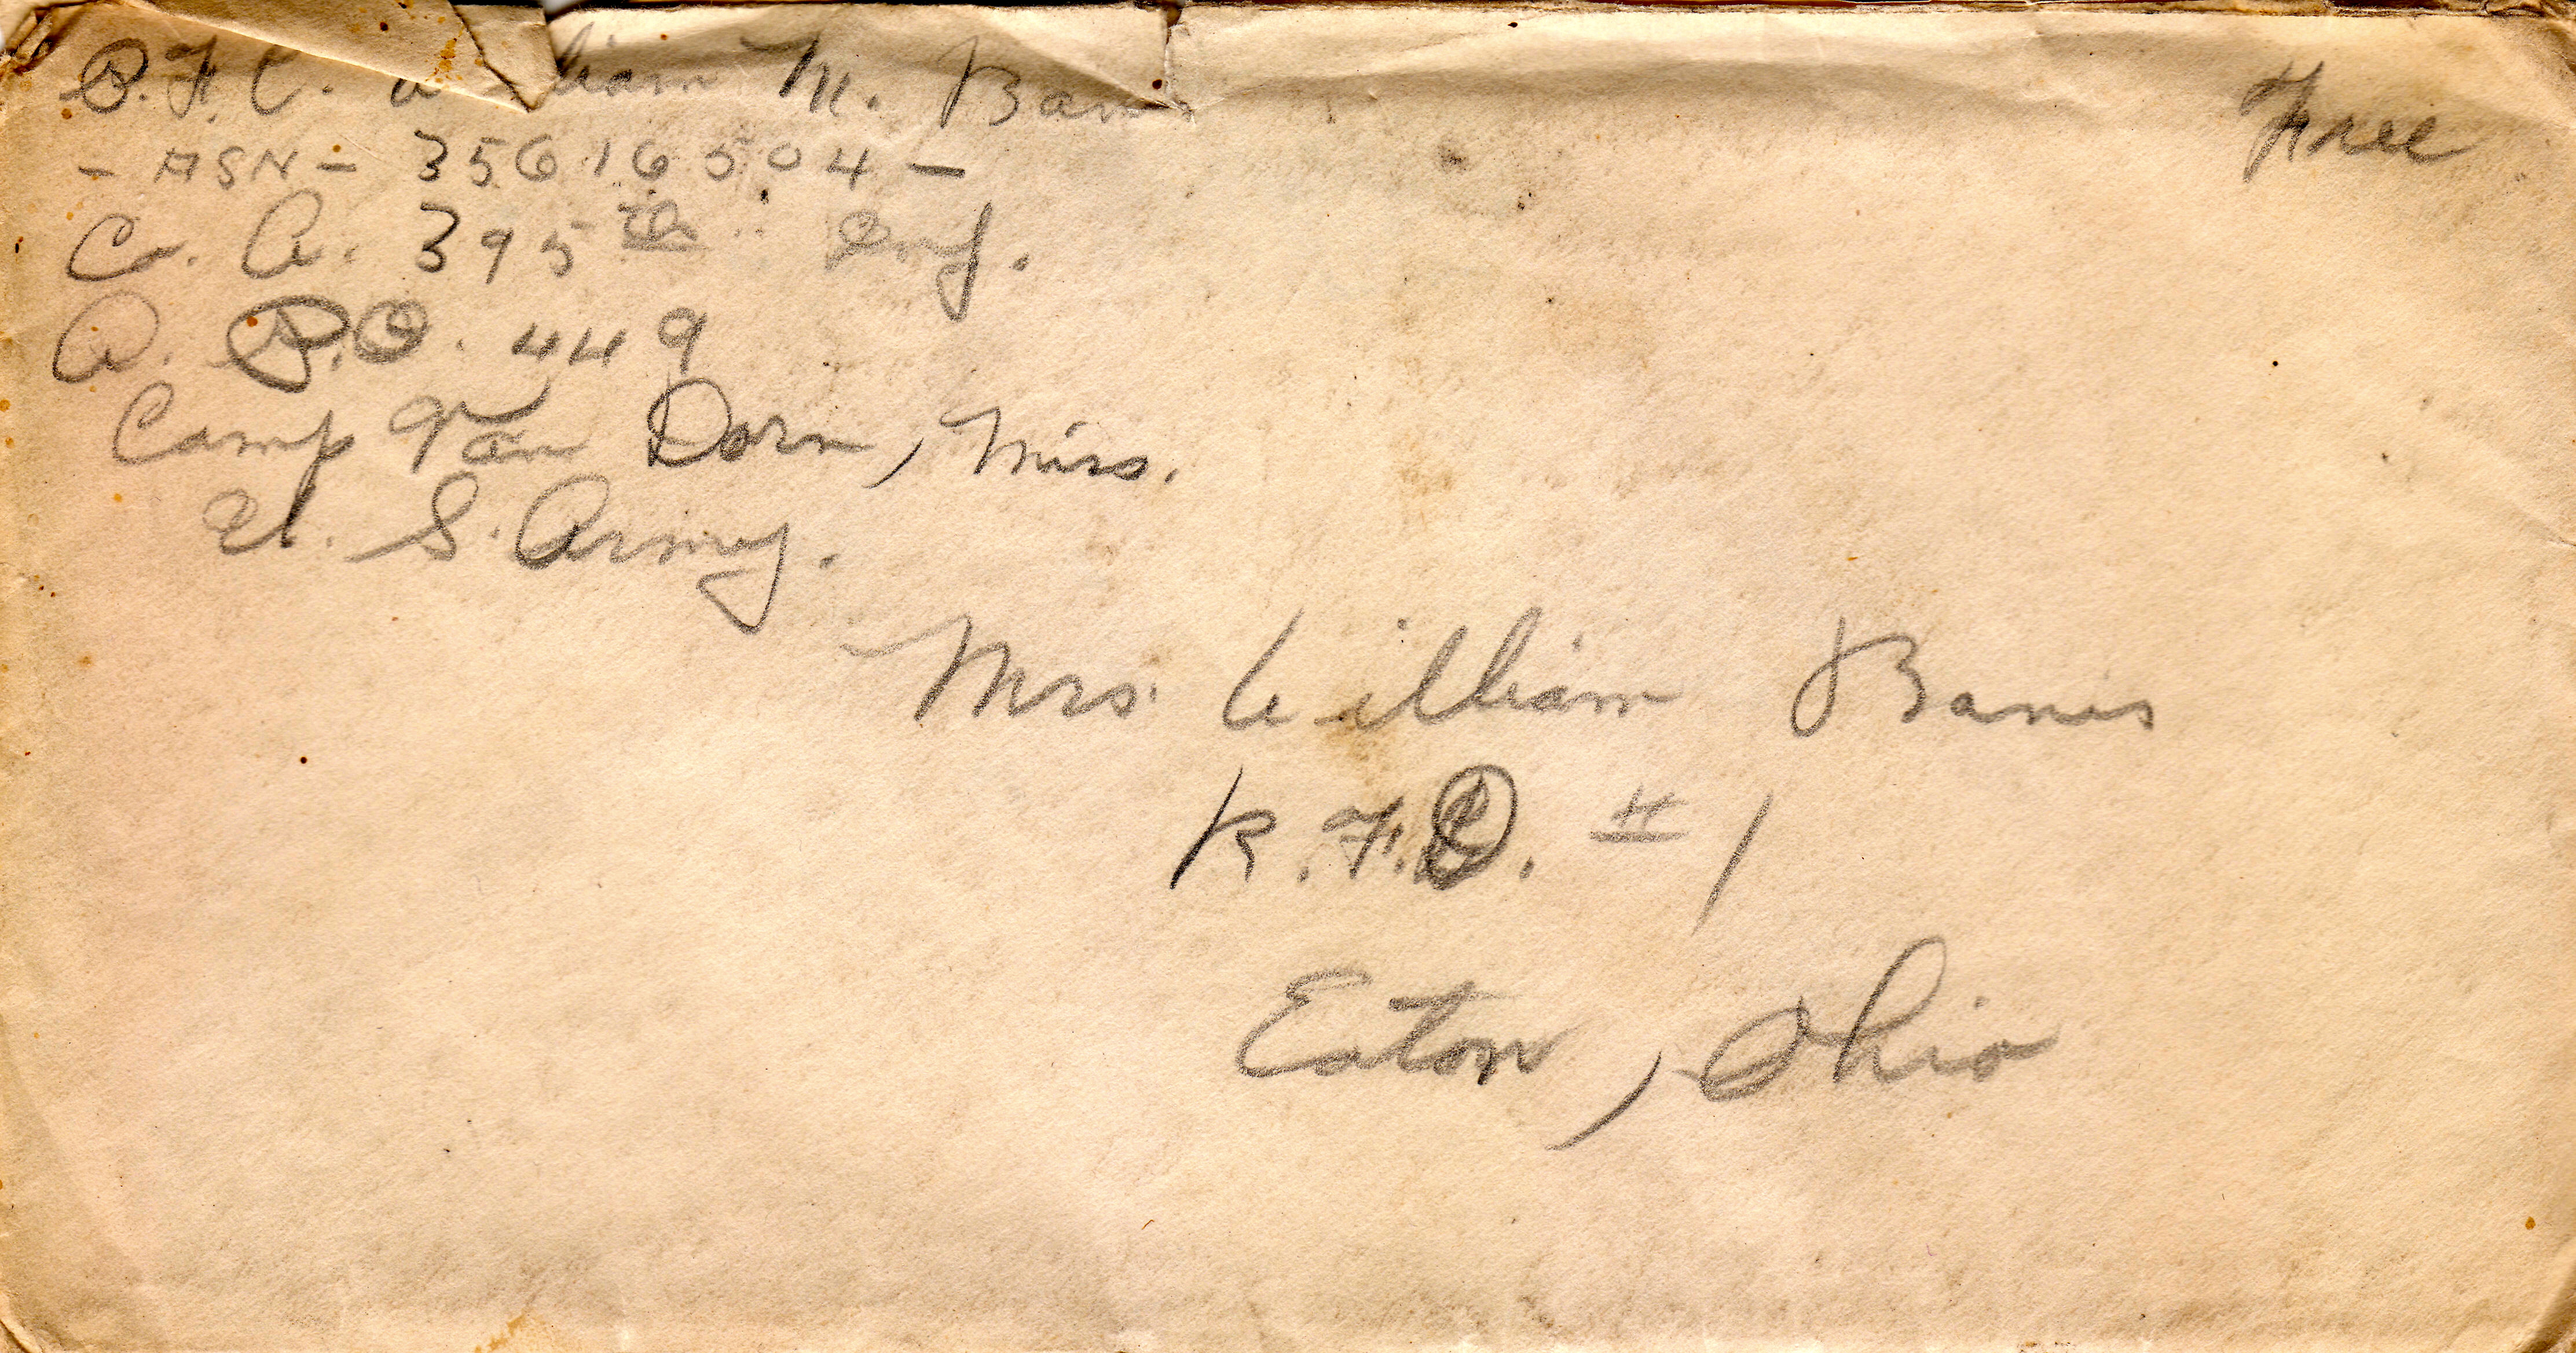 P.F.C. William M. Banis
- ASN - 35616504 -
Co. A. 395th Inf.
A. P.O. 449
Camp Van Dorn, Miss.
U. S. Army.
Free
Mrs. William Banis
R.F.D. # 1
Eaton, Ohio